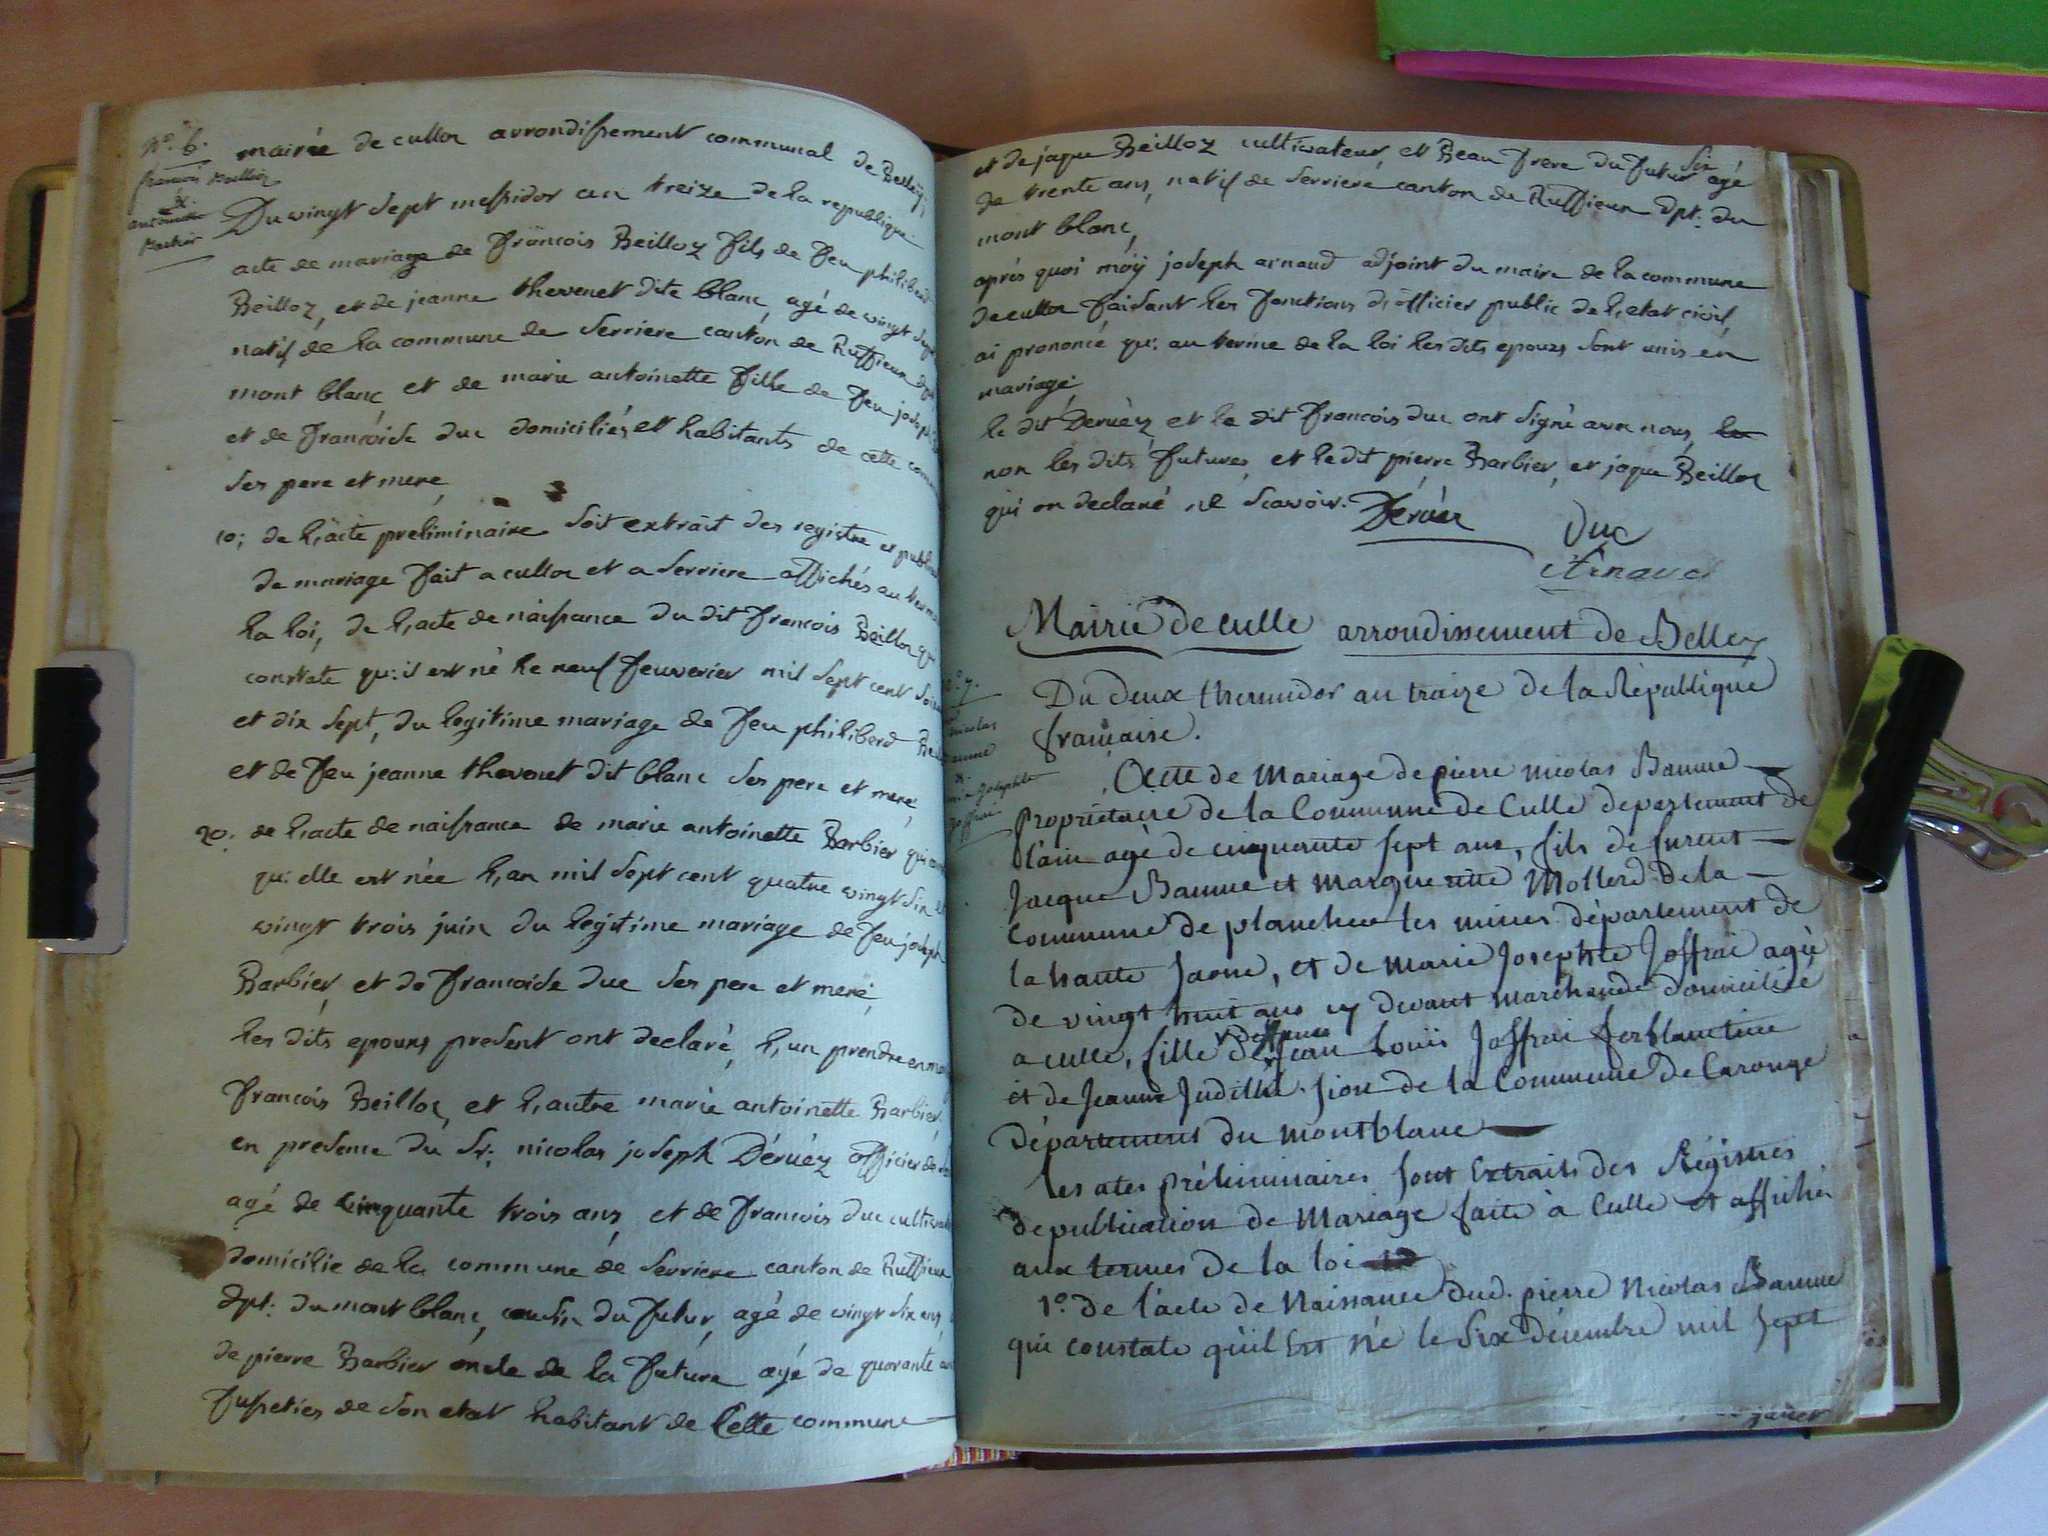 N°. 6.
françois Beilloz
&
antoinette
Barbier
mairie de culloz arrondissement communal de Belley,
Du vingt sept messidor an treize de la republique
acte de mariage de françois Beilloz fils de feu philiberd
Beilloz, et de jeanne thevenet dite blanc, agé de vingt sept
natif de la commune de Serriere canton de Ruffieux dpt
mont blanc et de marie antoinette fille de feu joseph
et de françoise duc domiciliés et habitants de cette comm
ses pere et mere
1o; de l,acte preliminaire soit extrait des registre et publica
de mariage fait a culloz et a Serriere affichés au terme
la loi, de l,acte de naissance du dit françois Beilloz qui
constate qu'il est né le neuf feuverier mil sept cent soixa
et dix sept, du legitime mariage de feu philiberd Be
et de feu jeanne thevenet dit blanc ses pere et mere,
2o; de l,acte de naissance de marie antoinette Barbier qui con
qu'elle est née l,an mil sept cent quatre vingt six le
vingt trois juin du legitime mariage de feu joseph
Barbier, et de françoise duc ses pere et mere,
les dits epoux present ont declaré, l,un prendre en ma
françois Beilloz, et l,autre marie antoinette Barbier,
en presence du Sr. nicolas joseph Déruéz officier de
agé de cinquante trois ans, et de françois duc cultivat
domicilie de la commune de Serriere canton de Ruffieux
dpt. du mont blanc, cousin du futur, agé de vingt six ans,
de pierre Barbier oncle de la future agé de quarante an
de son etat habitant de Cette commune
et de jaque Beilloz cultivateur, et Beau frere du futur agé
six
de trente ans, natif de Serriere canton de Ruffieux dpt. du
mont blanc,
aprés quoi moÿ joseph arnaud adjoint du maire de la commune
de culloz faisant les fonctions d'officier public de l,etat civil,
ai prononcé qu: au terme de la loi les dits epoux sont unis en
mariage;
le dit Deruèz et le dit françois duc ont signé avec nous,
non les dits futures, et le dit pierre Barbier, et jaque Beilloz
qui on declaré ne scavoir. Déruéz
Duc
Arnaud
Mairie de culle arrondissement de Belley
N°. 7.
nicolas
Bamme
&
marie Josephte
Joffrai
Du deux thermidor an traize de la République
française.
Acte de Mariage de pierre nicolas Bamme
propriétaire de la Commune de Culle departement de
l'ain agè de cinquante sept ans, fils de furent
Jacque Bamme et Marguerite Mollerd de la
Commune de plancher les mines département de
la haute Saone, et de Marie Josephte Joffrai agèe
de vingt huit ans cy devant marchande domiciliée
a culle, fille de Jean Louis Joffrai ferblantier
et de Jeanne Judithe Sion de la Commune de Carouge
département du montblanc
Les ates préliminaires sont Extraits des Régistres
de publication de Mariage faite à Culle et affiché
aux termes de la loi
1°. de l'acte de Naissance dud. pierre Nicolas Bamme
qui constate qu'il Est Né le Six décembre mil sept